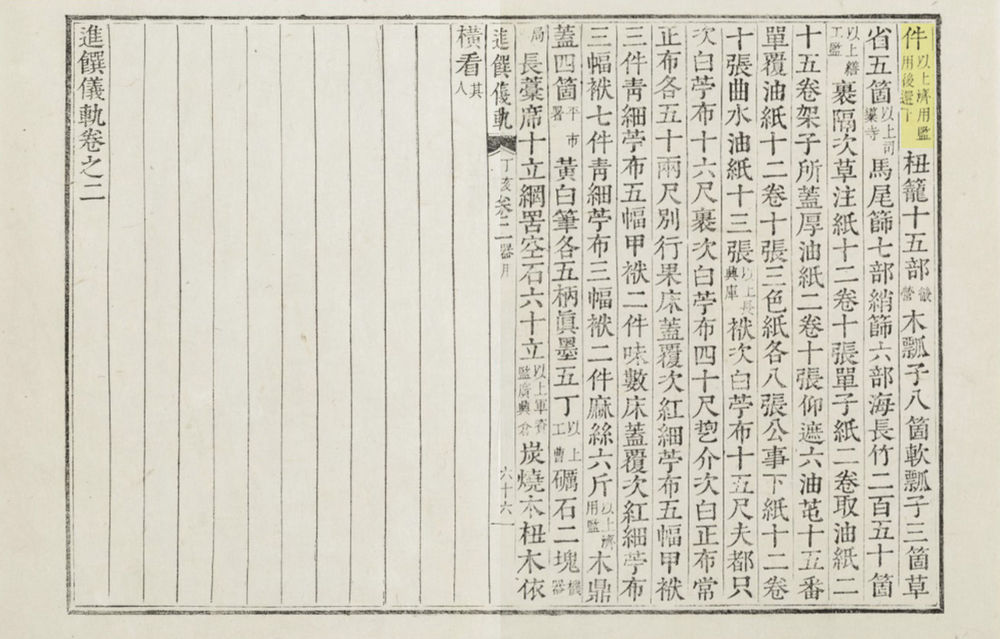 件以上濟用監用後還下杻籠十五部儀營木瓢子八箇軟瓢子三箇草
省五箇以上司䆃寺馬尾篩七部綃篩六部海長竹二百五十箇
以上繕工監裹隔次草注紙十二卷十張單子紙二卷取油紙二
十五卷架子所蓋厚油紙二卷十張仰遮六油芚十五番
單覆油紙十二卷十張三色紙各八張公事下紙十二卷
十張曲水油紙十三張以上長興庫袱次白苧布十五尺夫都只
次白苧布十六尺裹次白苧布四十尺乶介次白正布常
正布各五十兩尺別行果床蓋覆次紅細苧布五幅甲袱
三件靑細苧布五幅甲袱二件味數床蓋覆次紅細苧布
三幅袱七件靑細苧布三幅袱二件麻絲六斤以上濟用監木鼎
蓋四箇平市署黃白筆各五柄眞墨五丁以上工曹礪石二塊機器
局長藁席十立網罟空石六十立以上軍資監廣興倉炭燒木杻木依
進饌儀軌 丁亥 卷二 器用 六十六
橫看其入
進饌儀軌卷之二